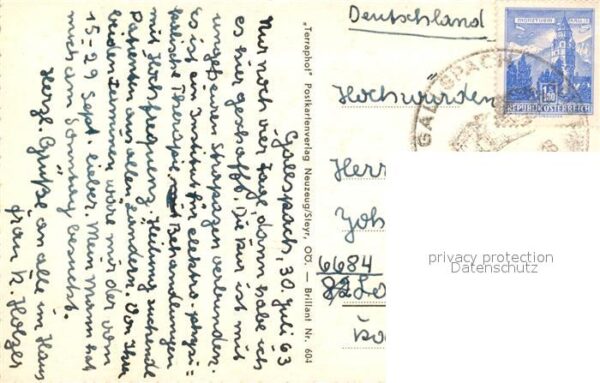 Gallspach, 30. Juli 63
Nur noch vier Tage, dann habe ich
es hier geschafft. Die Kur ist mit
ungeheuren Strapazen verbunden.
Es ist ein Institut für elektro-physi=
kalische Therapie. Behandlungen
mit Hochfrequenz. Heilung suchende
Patienten aus allen Ländern. Von Ihren
beiden Terminen wäre mir der vom
15-29 Sept. lieber. Mein Mann hat
mich am Sonntag besucht.
Herzl. Grüße an alle im Haus
Frau K. Holzer
„Terraphot" Postkartenverlag Neuzeug/Steyr, OÖ. — Brillant Nr. 604
Deutschland
Hochwürden
Herr
Joh
6684
GALLSPACH
1.80
REPUBLIK ÖSTERREICH
privacy protection
Datenschutz